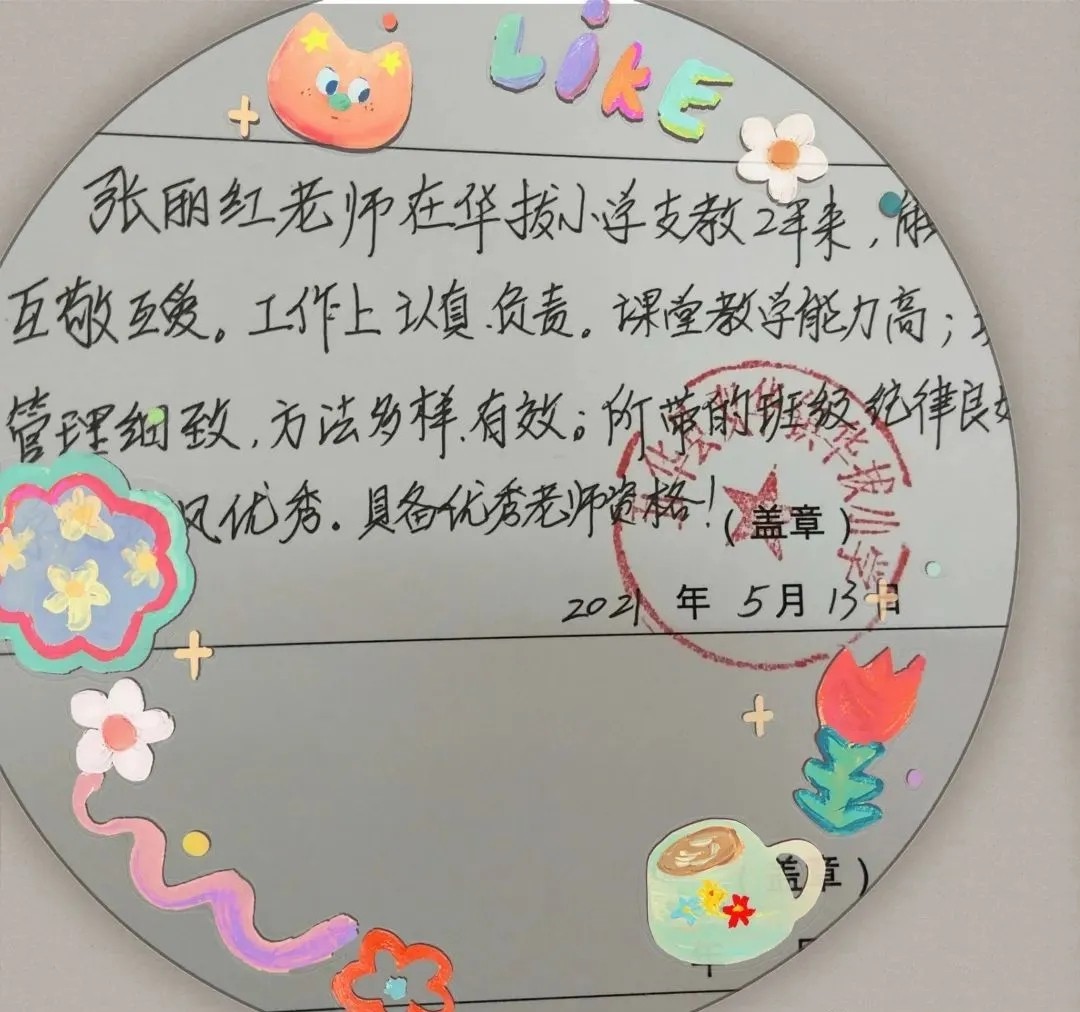 LiKE
张丽红老师在华拔小学支教2年来，能
互敬互爱。工作上认真.负责。课堂教学能力高；
管理细致，方法多样.有效。所带的班级纪律良好
风优秀。具备优秀老师资格！
（盖章）
2021年5月13日
盖章）
年